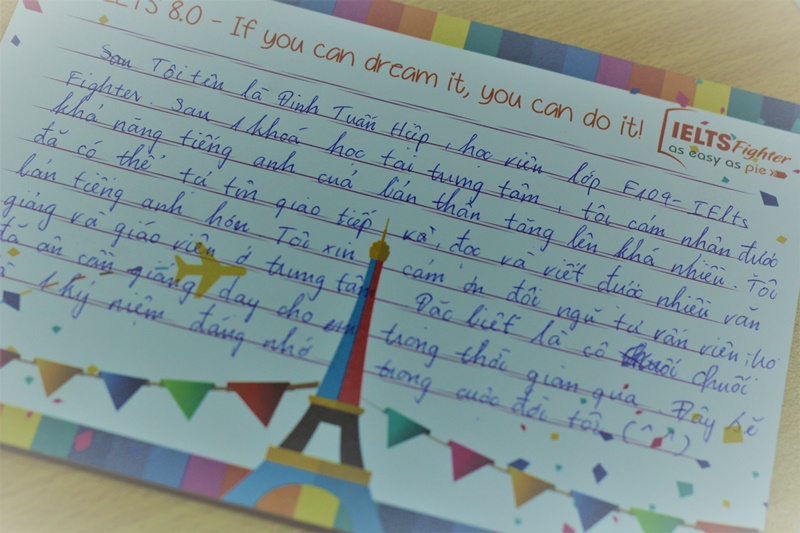 IELTS 8.0 - If you can dream it, you can do it!
IELTS Fighter
as easy as pie
Sau Tôi tên là Đinh Tuấn Hiệp, học viên lớp F109 - IELTS
Fighter. Sau 1 khoá học tại trung tâm, tôi cảm nhận được
khả năng tiếng anh cuả bản thân tăng lên khá nhiều. Tôi
đã có thể tự tin giao tiếp và đọc và viết được nhiều văn
bản tiếng anh hơn. Tôi xin cảm ơn đội ngũ tư vấn viên, hỗ
giảng và giáo viên ở trung tâm. Đặc biệt là cô Chuối
đã ân cần giảng dạy cho em trong thời gian qua. Đây sẽ
1 kỷ niệm đáng nhớ trong cuộc đời tôi (^^)